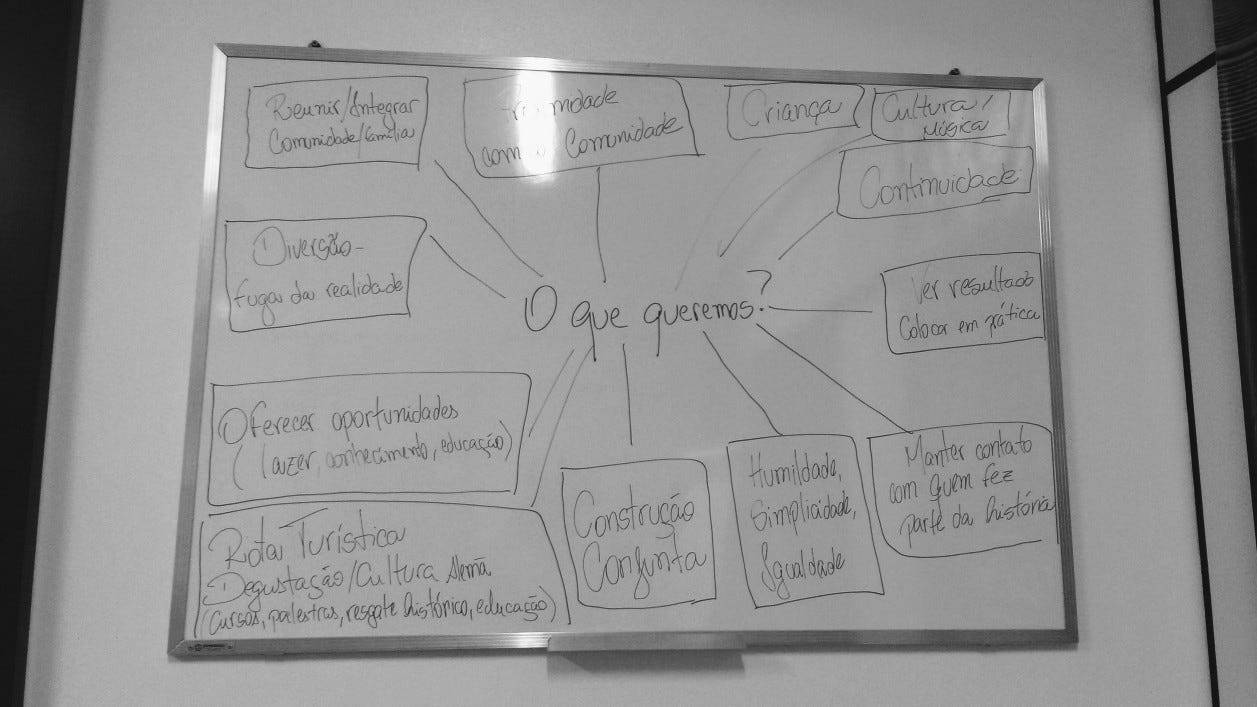 Reunir/Integrar
Comunidade/família
com a Comunidade
Criança
Cultura/
Música
Continuidade
Diversão-
fuga da realidade
O que queremos?
Ver resultado
Colocar em prática
Oferecer oportunidades
(lazer, conhecimento, educação)
Rota Turística
Degustação/Cultura Alemã
(cursos, palestras, resgate histórico, educação)
Construção
Conjunta
Humildade,
Simplicidade,
Igualdade
Manter contato
com quem fez
parte da história